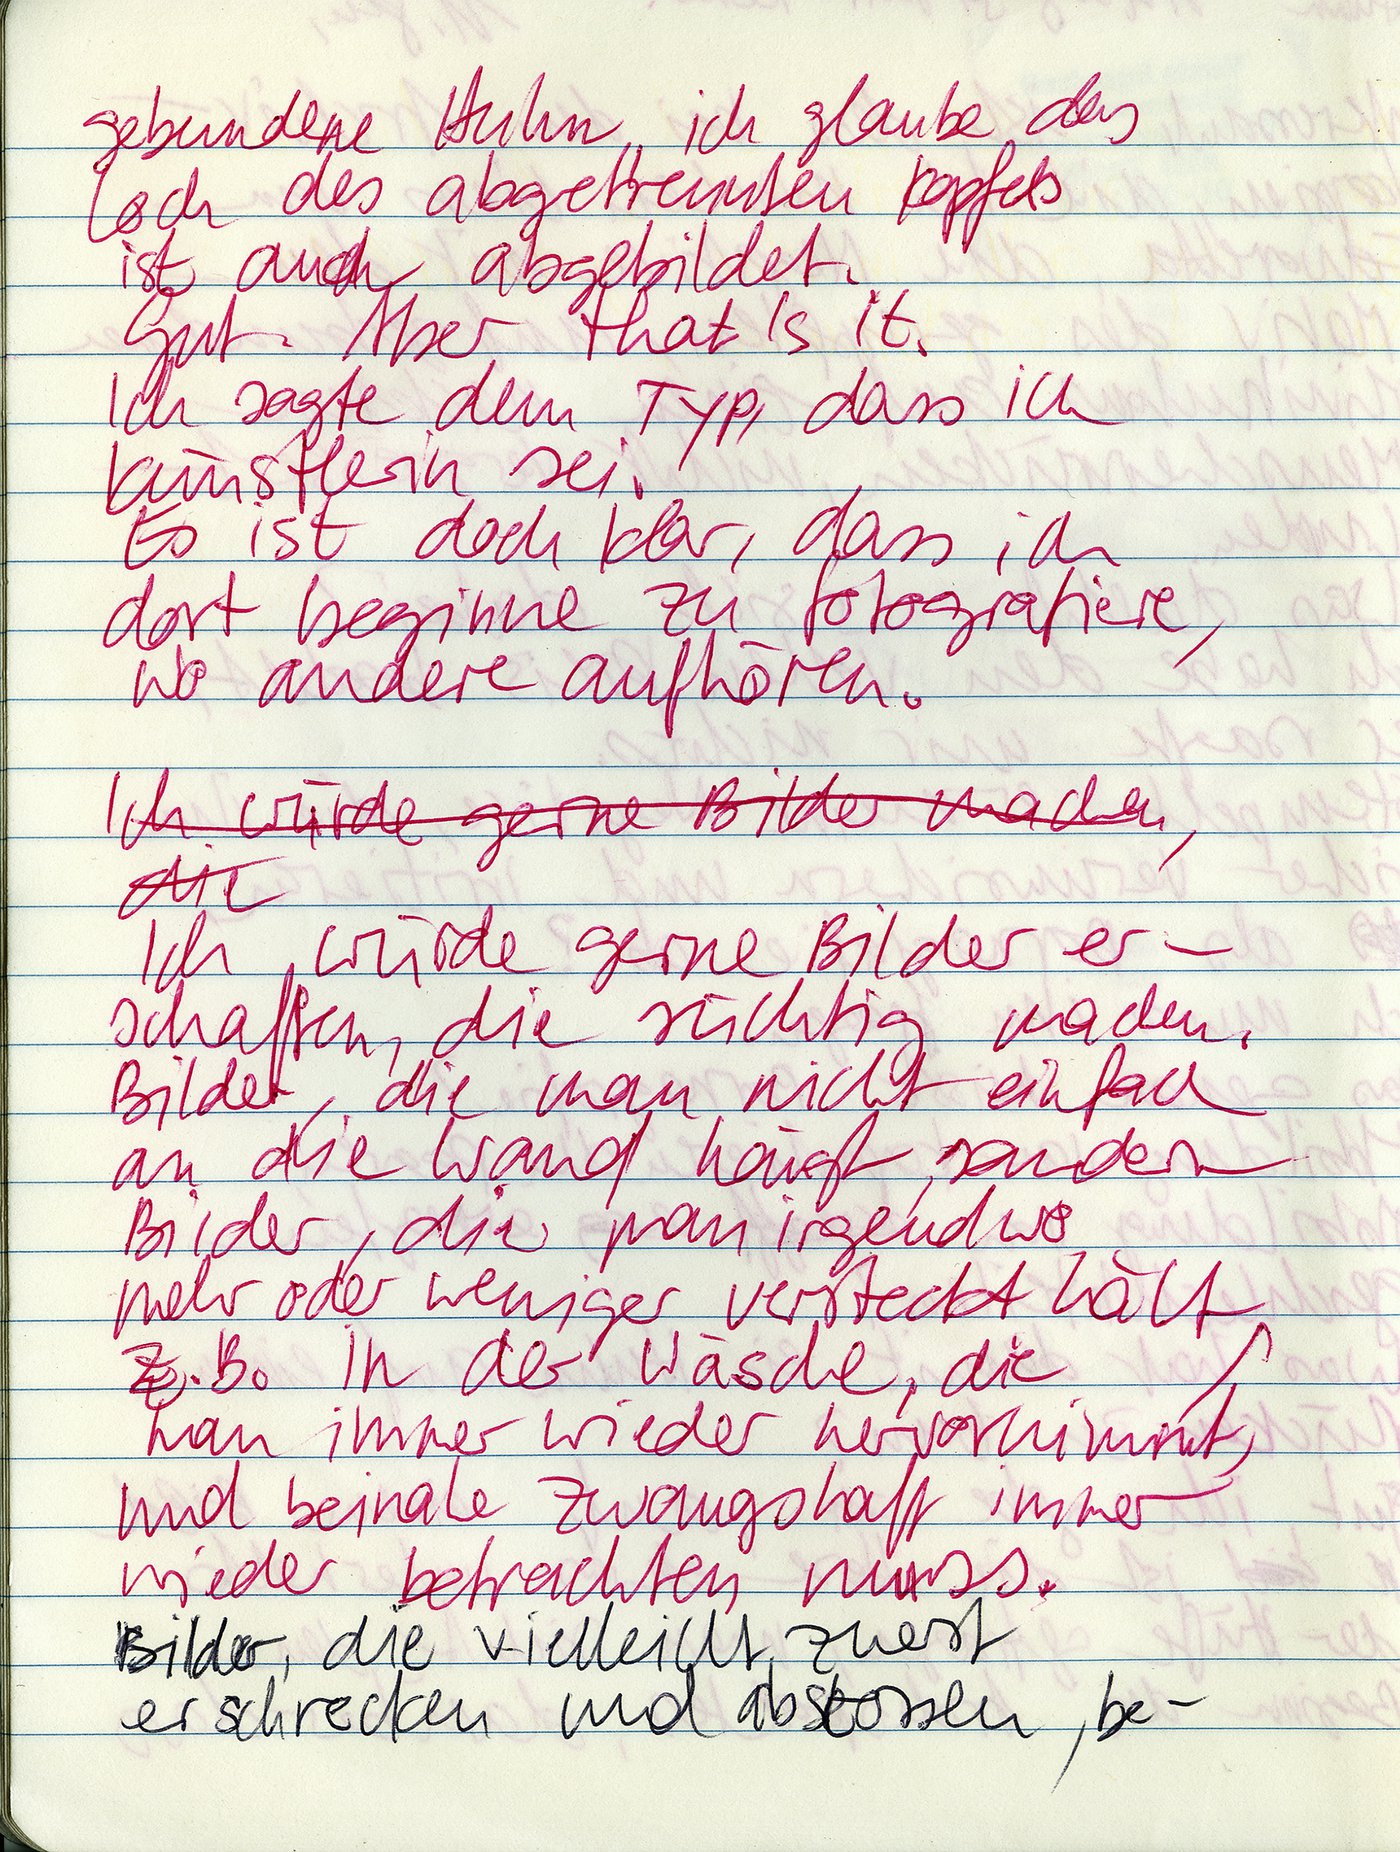 gebundene Huhn, ich glaube das
Loch des abgetrennten Kopfes
ist auch abgebildet.
Gut. Aber that is it.
Ich sagte dem Typ, dass ich
Künstlerin sei.
Es ist doch klar, dass ich
dort beginne zu fotografiere,
wo andere aufhören.
Ich würde gerne Bilder machen,
die
Ich würde gerne Bilder er-
schaffen, die süchtig machen.
Bilder, die man nicht einfach
an die Wand hängt, sondern
Bilder, die man irgendwo
mehr oder weniger versteckt hält
z.B. in der Wäsche, die
man immer wieder hervornimmt,
und beinahe zwangshaft immer
wieder betrachten muss.
Bilder, die vielleicht zuerst
erschrecken und abstossen, be-